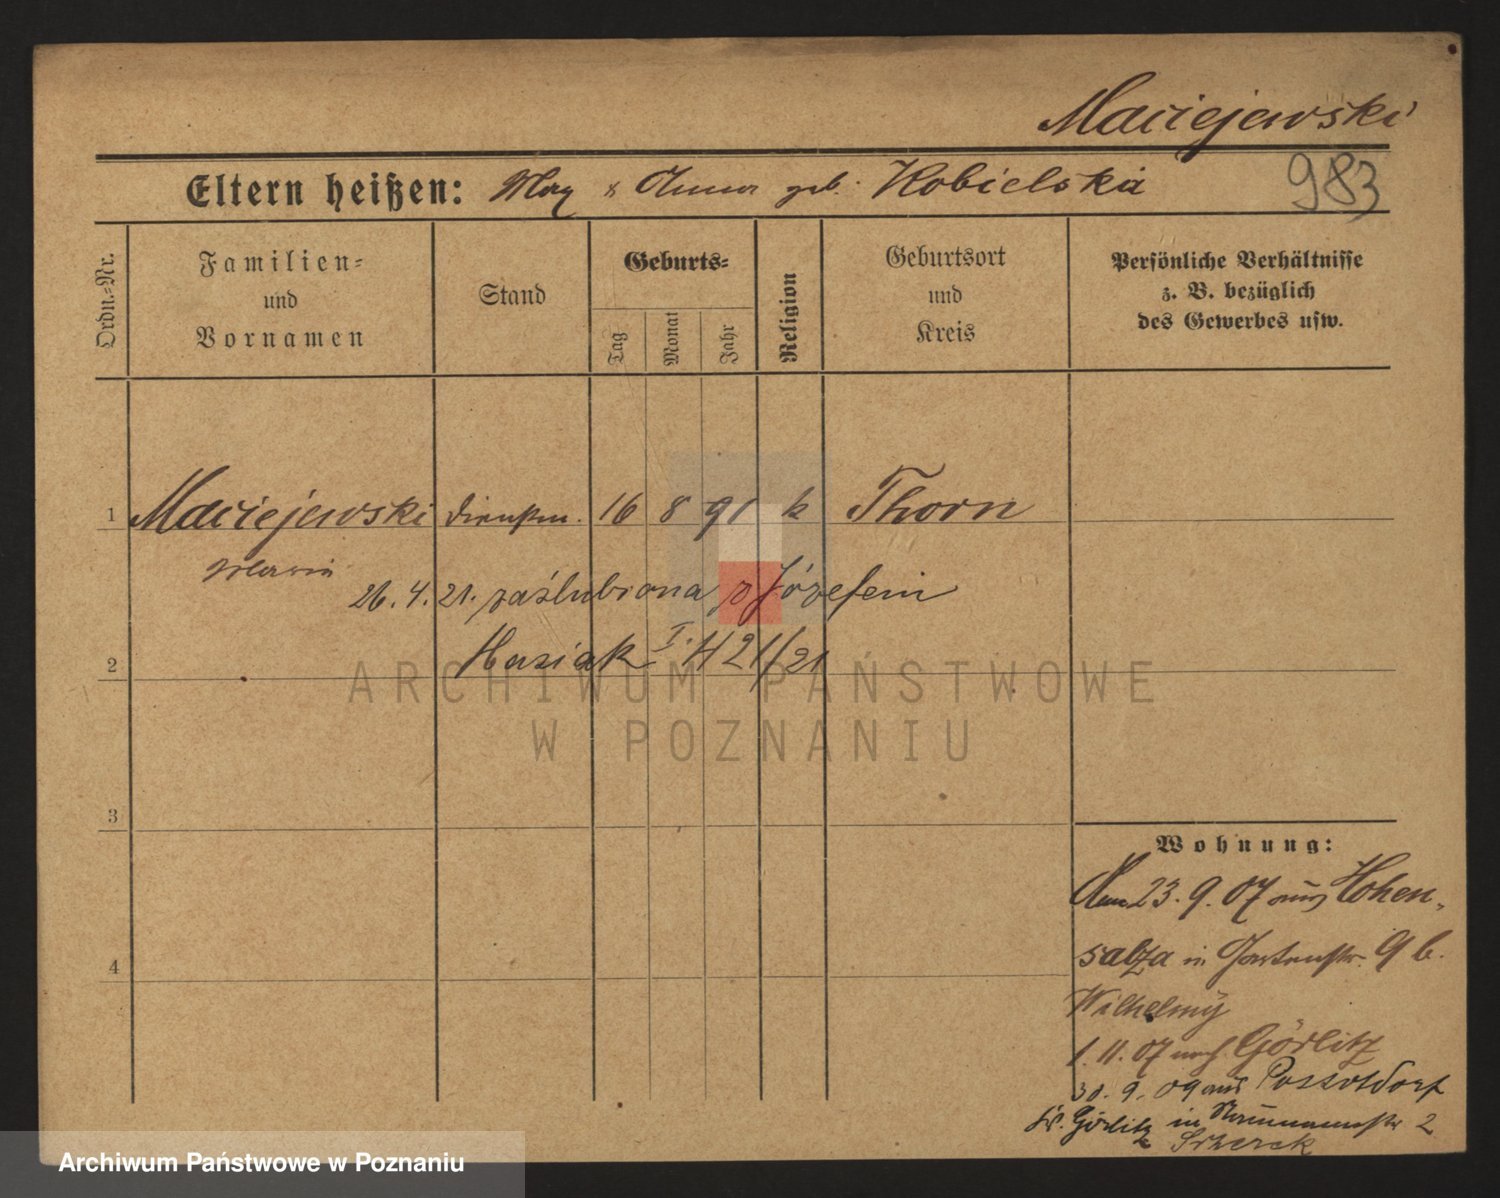 Maciejewski
983
Eltern heißen: Max & Anna geb. Kobielska
Ordn.-Nr.
Familien-
und
Vornamen
Stand
Geburts-
Tag
Monat
Jahr
Religion
Geburtsort
und
Kreis
Persönliche Verhältnisse
z. B. bezüglich
des Gewerbes usw.
1 Maciejewski Dienstm. 16 8 91 k Thorn
Maria
26. 4. 21. zaślubiona z Józefem
2 Hasiak I. H 21/21
ARCHIWUM PAŃSTWOWE
W POZNANIU
3
Wohnung:
Am 23. 9. 07 aus Hohen-
salza in Gartenstr. 9 b.
4
Wilhelmy
1. 11. 07 nach Görlitz
30. 9. 09 aus Possotdorf
Kr. Görlitz in Naumannstr 2
Archiwum Państwowe w Poznaniu